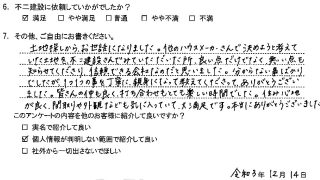 6. 不二建設に依頼していかがでしたか?
☑ 満足 □ やや満足 □ 普通 □ やや不満 □ 不満
7. その他、ご自由にお書きください。
土地探しから、お世話になりました。他のハウスメーカーさんで決めようと考えて
いた土地を、不二建設さんでみていただいた所、良い点だけでなく、悪い点も
知らせてくださり、信頼できる会社なのだと思いました。分からない事ばかり
でしたが、1つ1つの事を丁寧に、親身になって教えてくださって、ありがとうござい
ました。皆さんの仲も良く、打ち合わせもとても楽しい時間でした。住み心地
が良く、間取りや外観なども気に入っていて、大満足です。本当にありがとうございました
このアンケートの内容を他のお客様に紹介して良いですか?
□ 実名で紹介して良い
☑ 個人情報が判明しない範囲で紹介して良い
□ 社外から一切出さないでほしい
令和3年 12月 14日